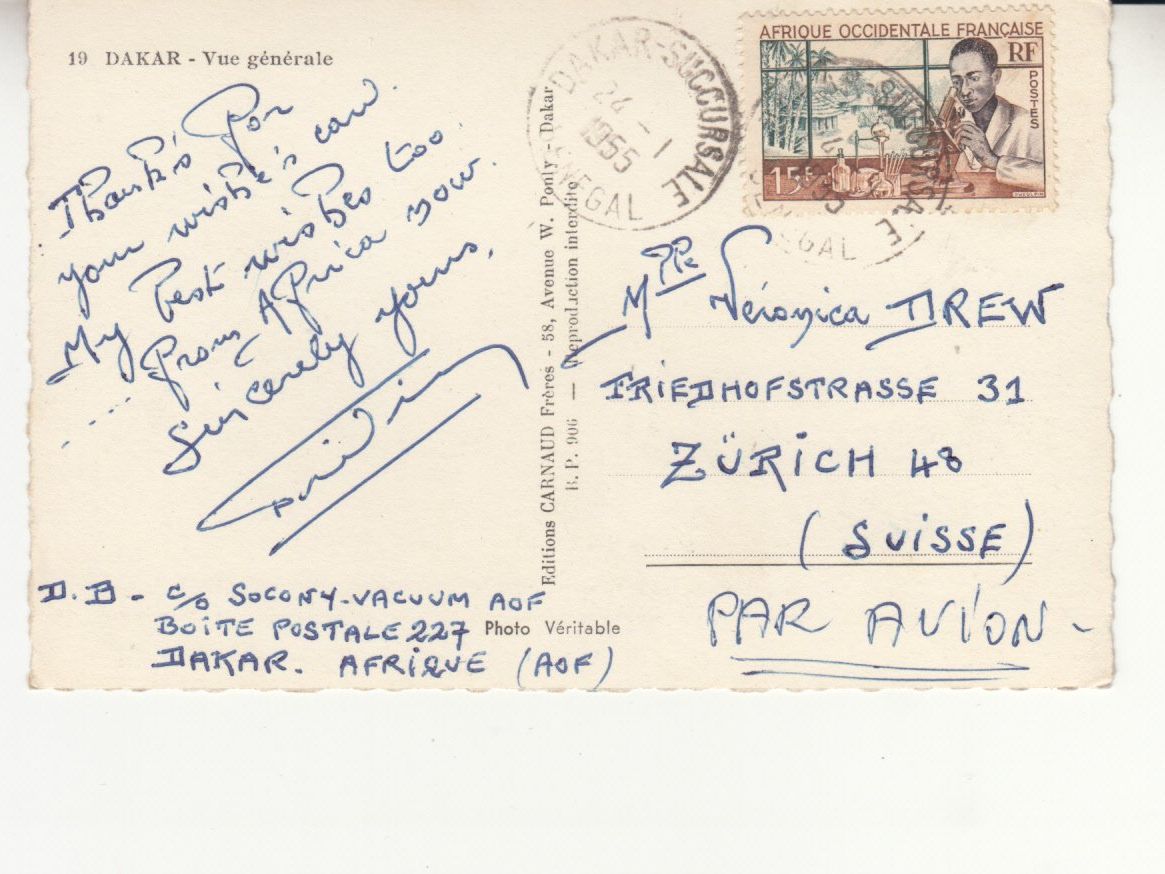 19 DAKAR - Vue générale
Thank's for
your wishe's card.
My best wishes too
from Africa now.
Sincerely yours,
D.B - c/o SOCONY-VACUUM AOF
BOITE POSTALE 227
DAKAR. AFRIQUE (AOF)
Photo Véritable
Editions CARNAUD Frères - 58, Avenue W. Ponty - Dakar
B.P. 906 — Reproduction interdite
DAKAR-SUCCURSALE
24 - 1
1955
SENEGAL
AFRIQUE OCCIDENTALE FRANÇAISE
RF
POSTES
15F
Mlle Véronica DREW
FRIEDHOFSTRASSE 31
ZÜRICH 48
(SUISSE)
PAR AVION -